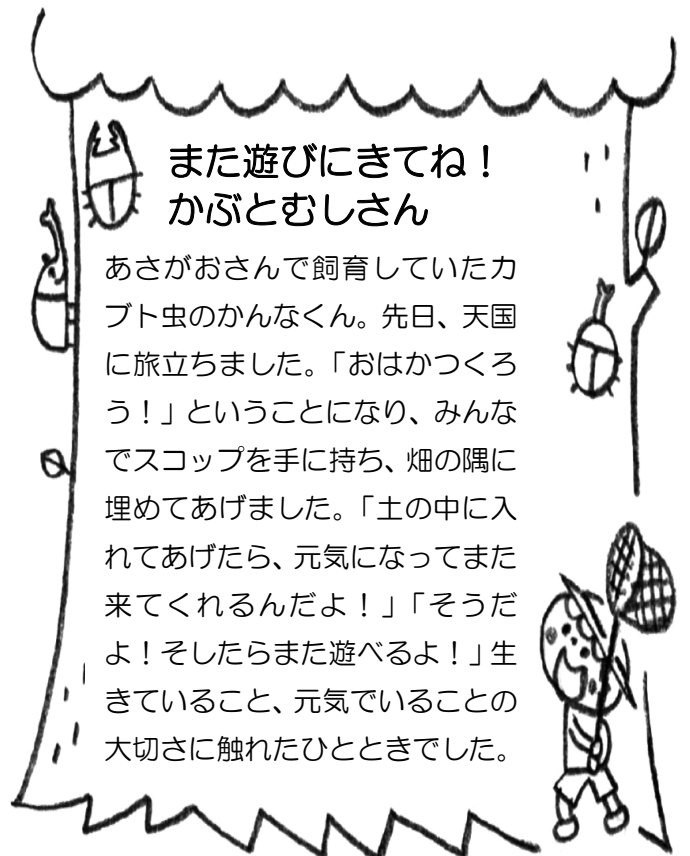 また遊びにきてね！
かぶとむしさん
あさがおさんで飼育していたカ
ブト虫のかんなくん。先日、天国
に旅立ちました。「おはかつくろ
う！」ということになり、みんな
でスコップを手に持ち、畑の隅に
埋めてあげました。「土の中に入
れてあげたら、元気になってまた
来てくれるんだよ！」「そうだ
よ！そしたらまた遊べるよ！」生
きていること、元気でいることの
大切さに触れたひとときでした。